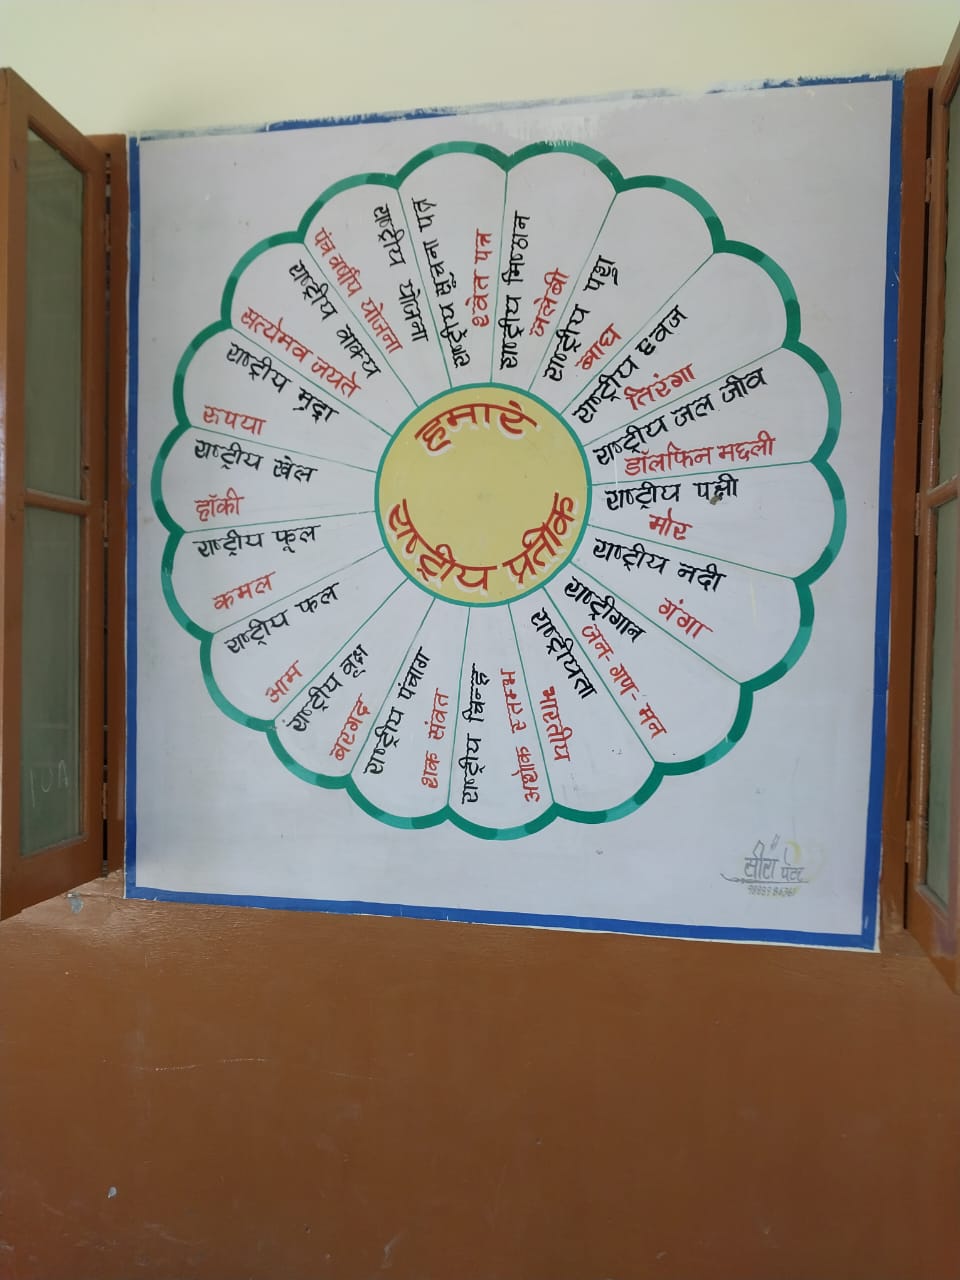 हमारे
राष्ट्रीय प्रतीक
राष्ट्रीय मिष्ठान
जलेबी
राष्ट्रीय पशु
बाघ
राष्ट्रीय ध्वज
तिरंगा
राष्ट्रीय जल जीव
डॉलफिन मछली
राष्ट्रीय पक्षी
मोर
राष्ट्रीय नदी
गंगा
राष्ट्रीगान
जन-गण-मन
राष्ट्रीयता
भारतीय
राष्ट्रीय चिन्ह
अशोक स्तम्भ
राष्ट्रीय पंचाग
शक संवत
राष्ट्रीय वृक्ष
बरगद
राष्ट्रीय फल
आम
राष्ट्रीय फूल
कमल
राष्ट्रीय खेल
हॉकी
राष्ट्रीय मुद्रा
रुपया
राष्ट्रीय वाक्य
सत्येमव जयते
राष्ट्रीय योजना
पंच वर्षीप योजना
राष्ट्रीय सूचना पत्र
श्वेत पत्र